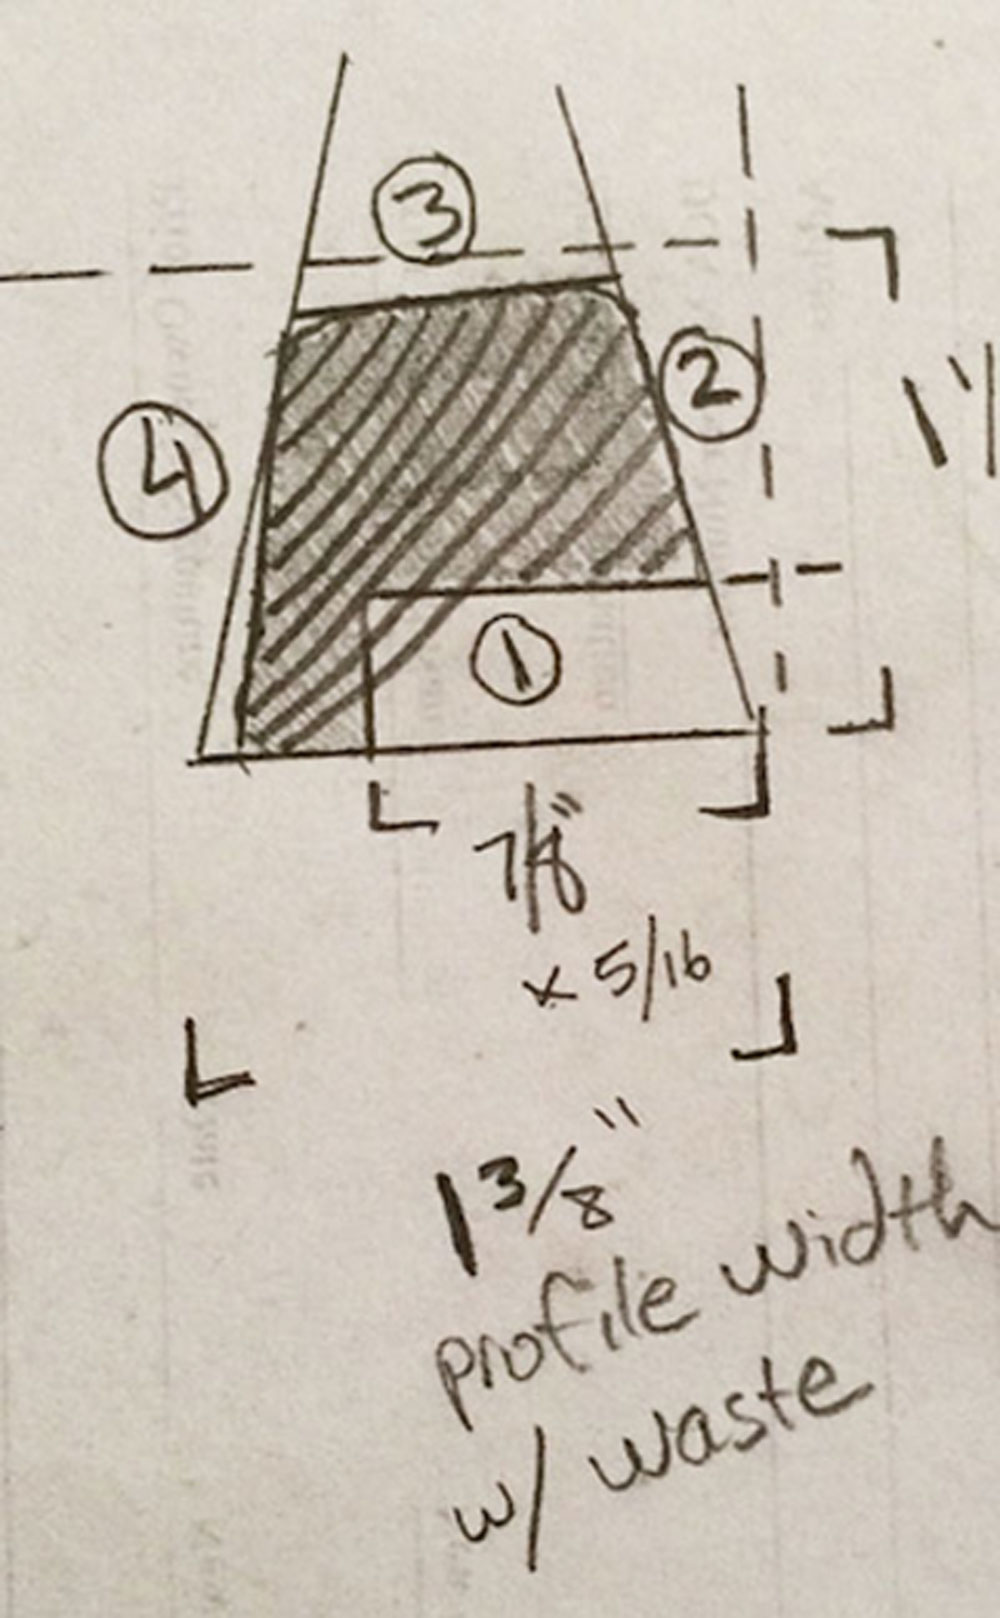 3
2
4
1
7/8"
x 5/16
1 3/8"
profile width
w/ waste